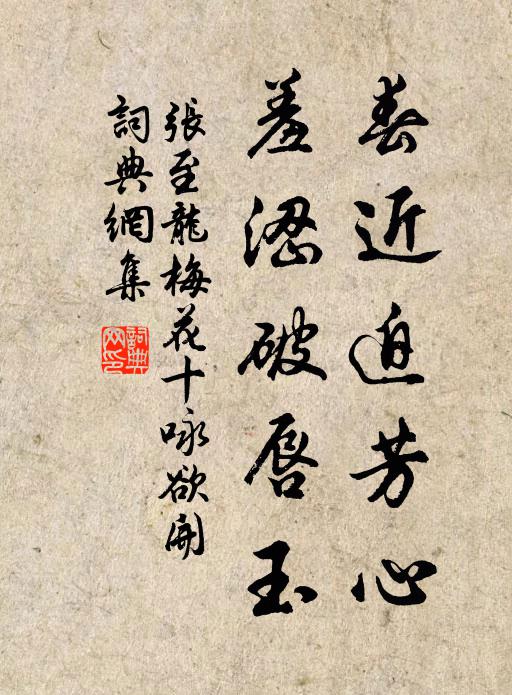 春近迫芳心
羞澀破唇玉
張至龍梅花十咏欲開
詞典網集
詞典網印